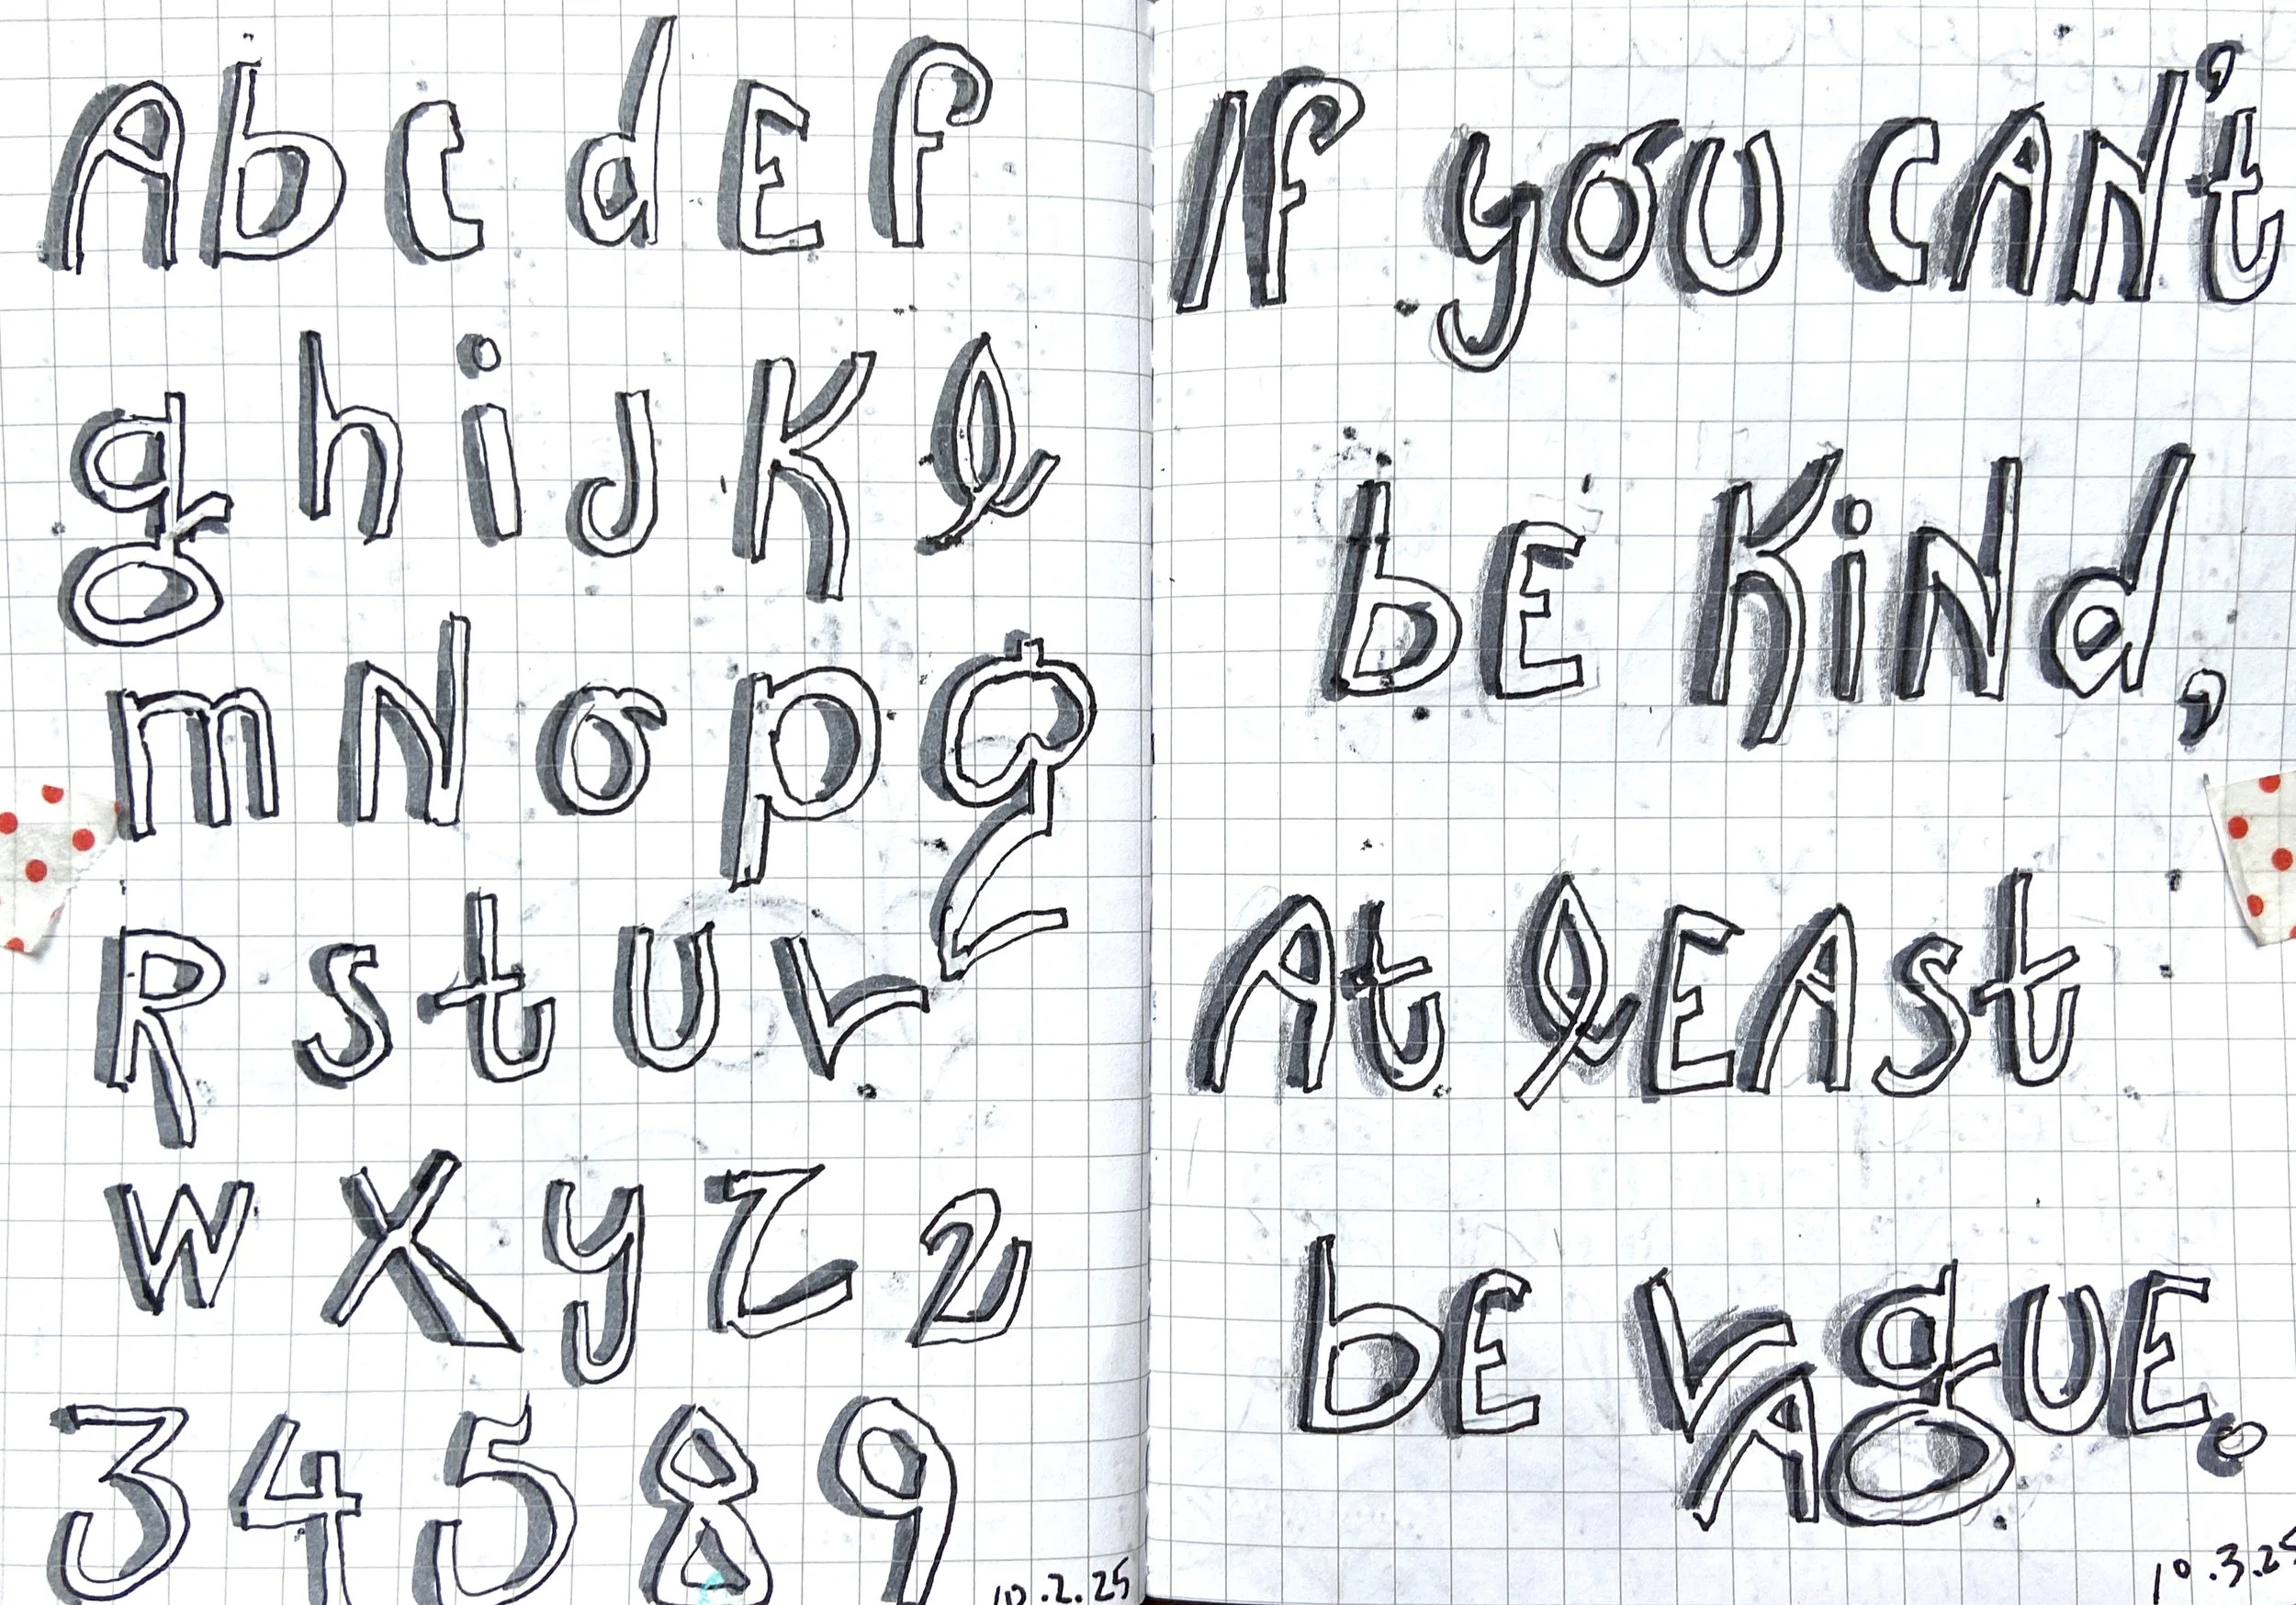 A b C d E f
g h i J K l
m N o p Q
R s t U V
W X y Z 2
3 4 5 8 9
10.2.25
If you CAN't
bE KiNd,
At lEAst
bE VAgUE.
10.3.25